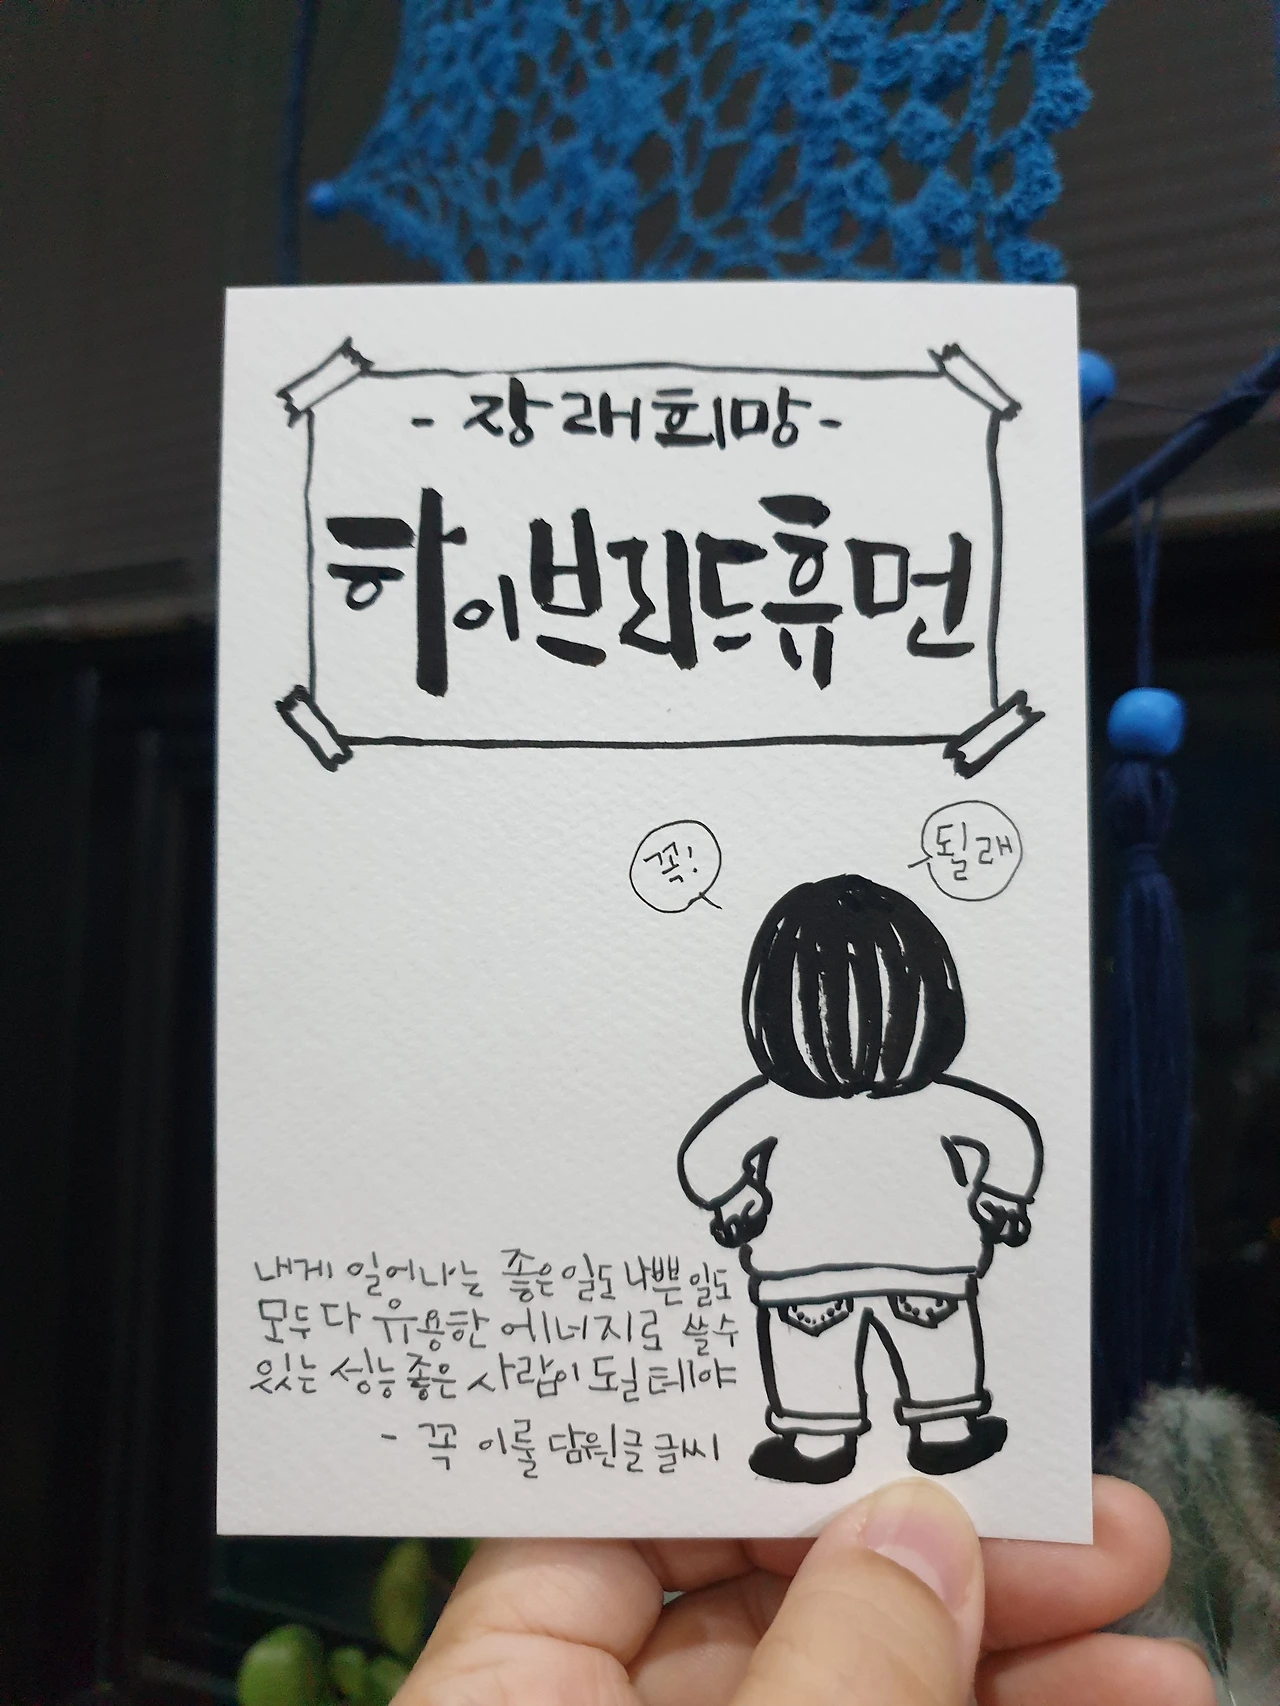 - 장래희망 -
하이브리드휴먼
꼭!
될래
내게 일어나는 좋은일도 나쁜일도
모두다 유용한 에너지로 쓸수
있는 성능좋은 사람이 될테야
- 꼭 이룰 담원글글씨